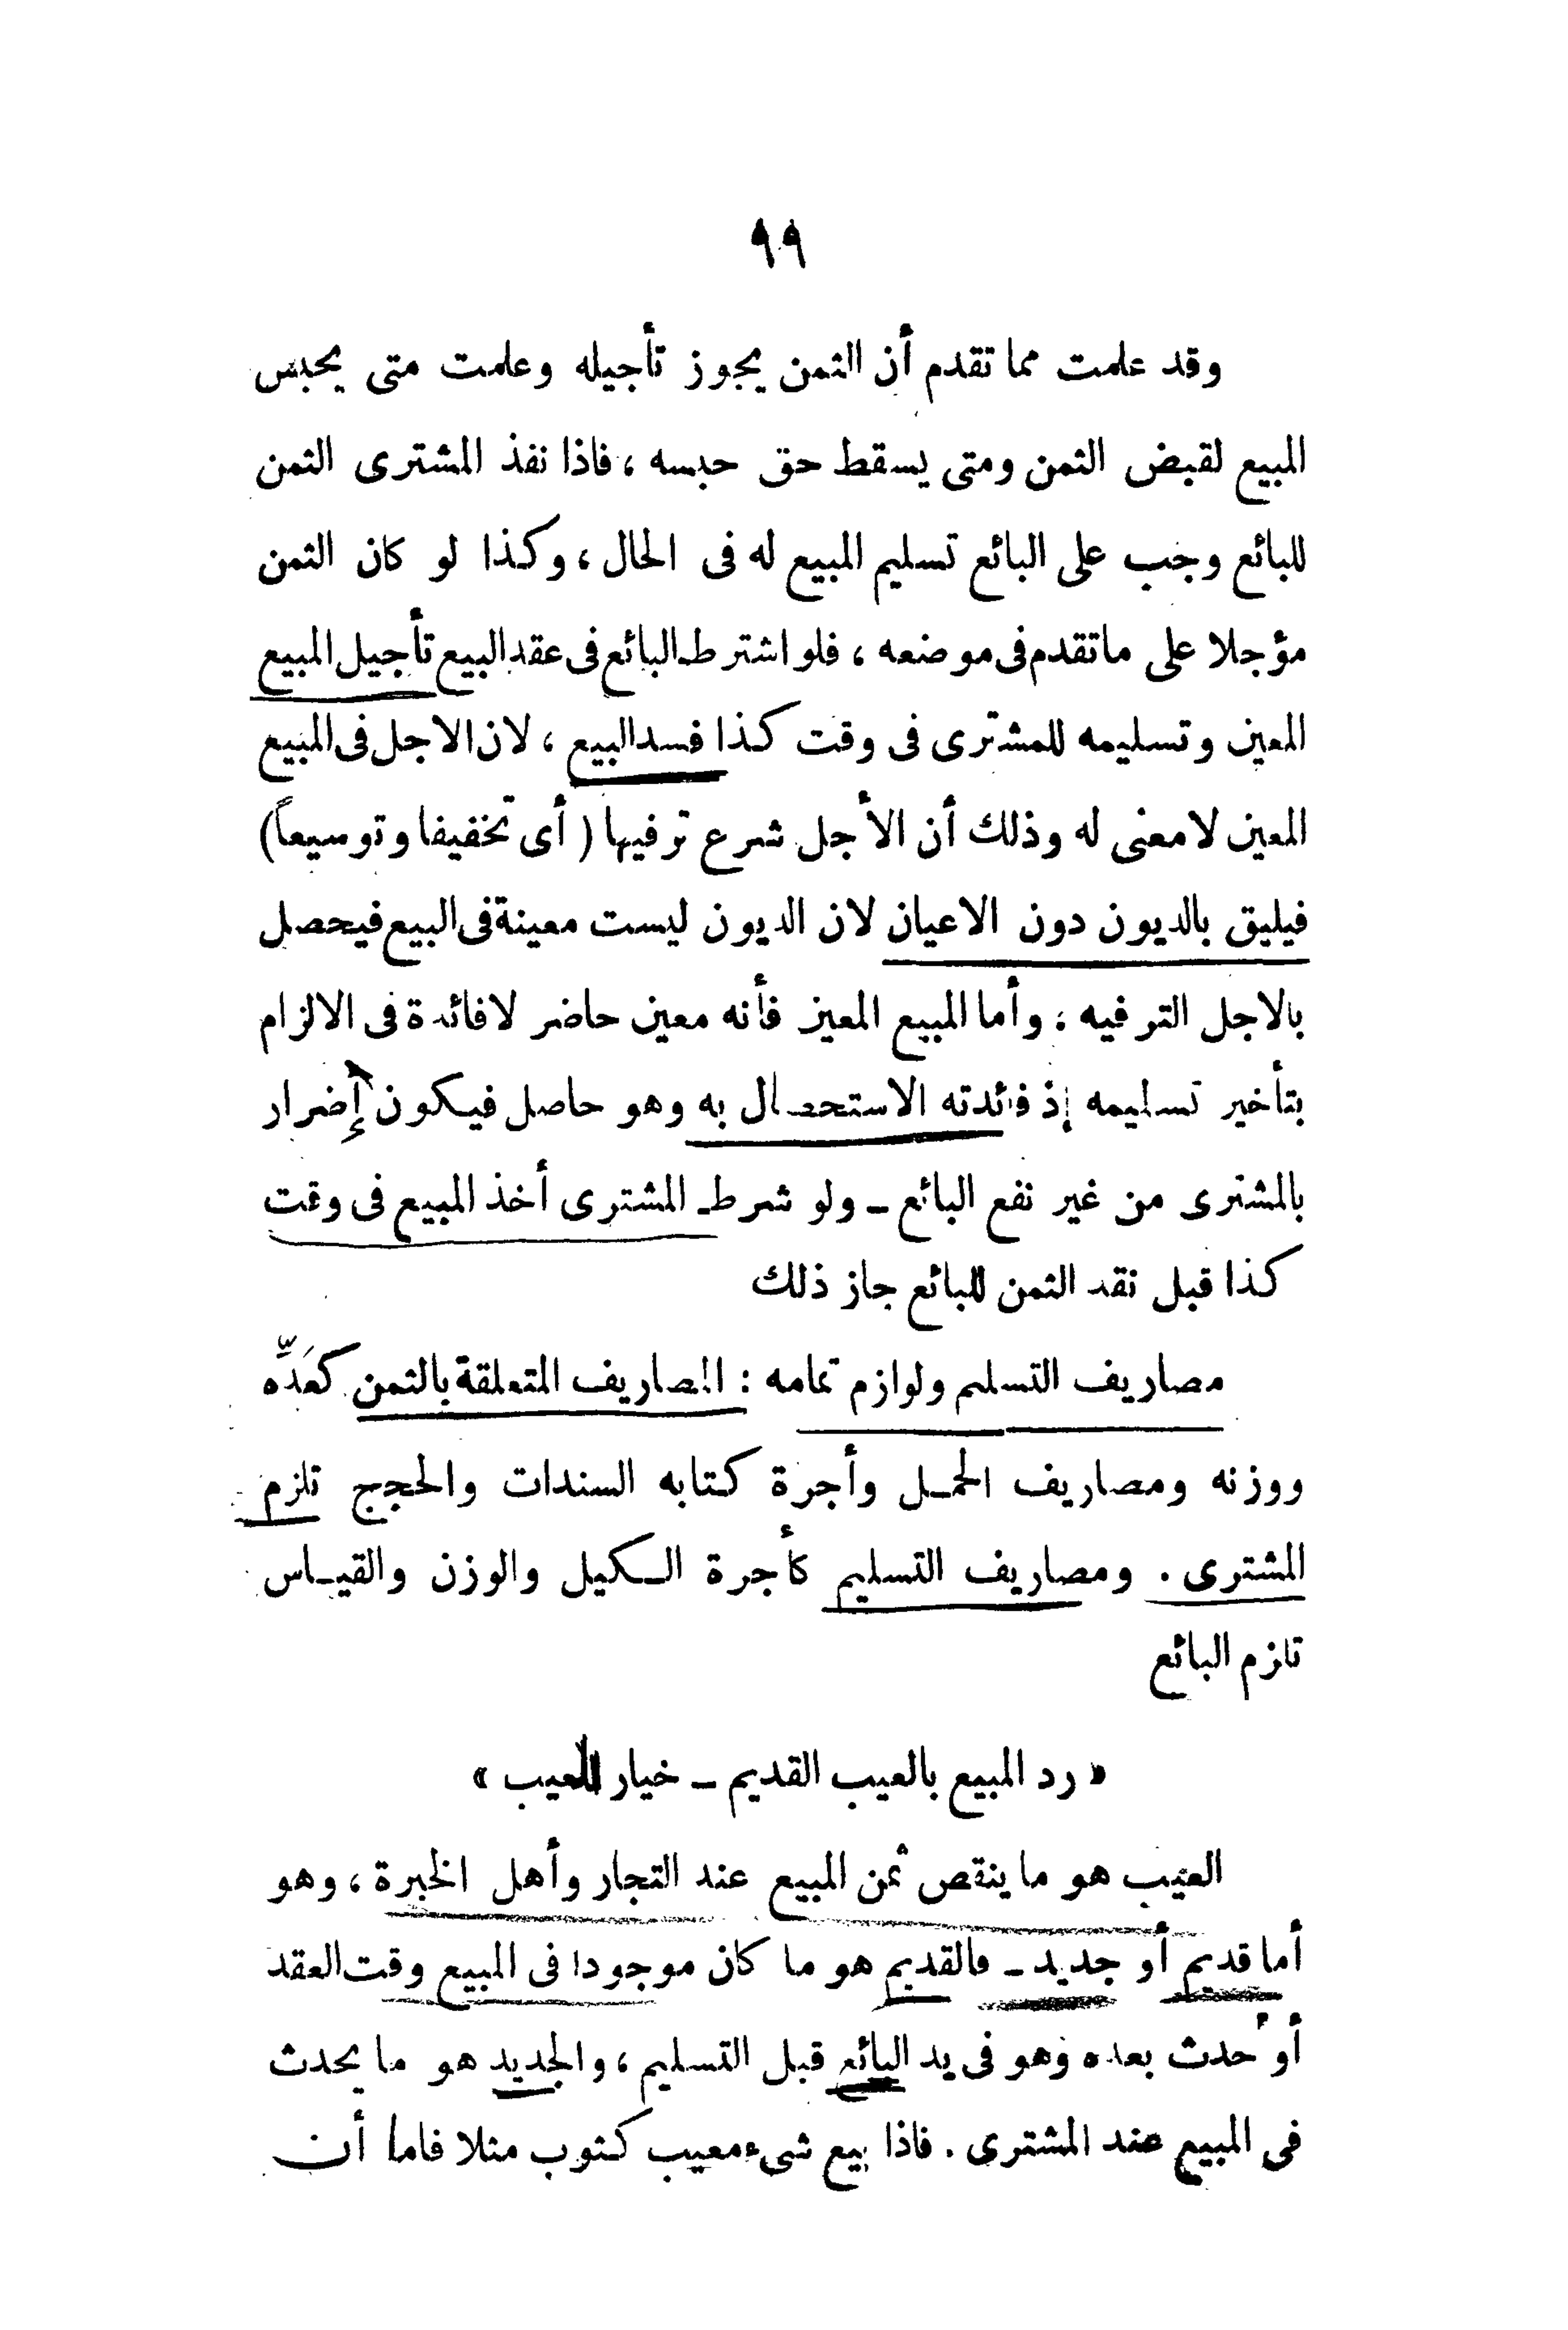 ٩٩
وقد علمت مما تقدم أن الثمن يجوز تأجيله وعلمت متى يحبس
المبيع لقبض الثمن ومتى يسقط حق حبسه ، فاذا نفذ المشترى الثمن
للبائع وجب على البائع تسليم المبيع له فى الحال ، وكذا لو كان الثمن
مؤجلا على ماتقدم فى موضعه ، فلو اشترط البائع فى عقد البيع تأجيل المبيع
المعين وتسليمه للمشترى فى وقت كذا فسد البيع ، لان الاجل فى المبيع
المعين لامعنى له وذلك أن الأجل شرع ترفيها ( أى تخفيفا وتوسيعاً )
فيليق بالديون دون الاعيان لان الديون ليست معينة فى البيع فيحصل
بالاجل الترفيه ، وأما المبيع المعين فأنه معين حاضر لافائدة فى الالزام
بتأخير تسليمه إذ فائدته الاستحصال به وهو حاصل فيكون إضرار
بالمشترى من غير نفع البائع ــ ولو شرط المشترى أخذ المبيع فى وقت
كذا قبل نقد الثمن للبائع جاز ذلك
مصاريف التسليم ولوازم تمامه : المصاريف المتعلقة بالثمن كعَدِّه
ووزنه ومصاريف الحمل وأجرة كتابه السندات والحجج تلزم
المشترى . ومصاريف التسليم كأجرة الكيل والوزن والقياس
تلزم البائع
« رد المبيع بالعيب القديم ــ خيار العيب »
العيب هو ما ينقص ثمن المبيع عند التجار وأهل الخبرة ، وهو
أما قديم أو جديد ــ فالقديم هو ما كان موجودا فى المبيع وقت العقد
أو حدث بعده وهو فى يد البائع قبل التسليم ، والجديد هو ما يحدث
فى المبيع عند المشترى . فاذا بيع شىء معيب كثوب مثلا فاما أن